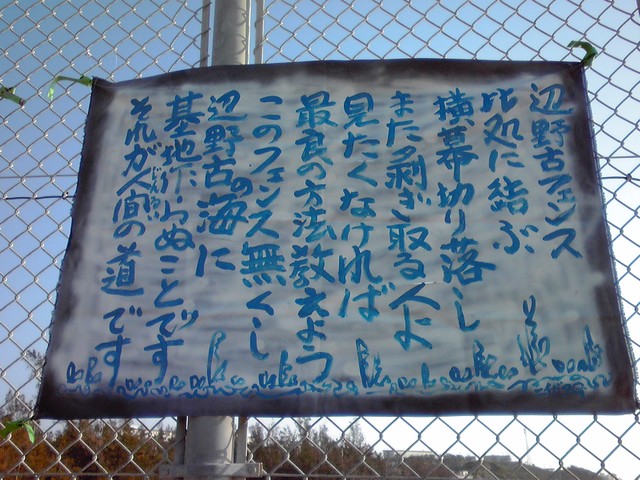 辺野古フェンス
此処に結ぶ
横幕切り落し
また剥ぎ取る人よ
見たくなければ
最良の方法教えよう
このフェンス無くし
辺野古の海に
基地作らぬことです
それが人間の道です